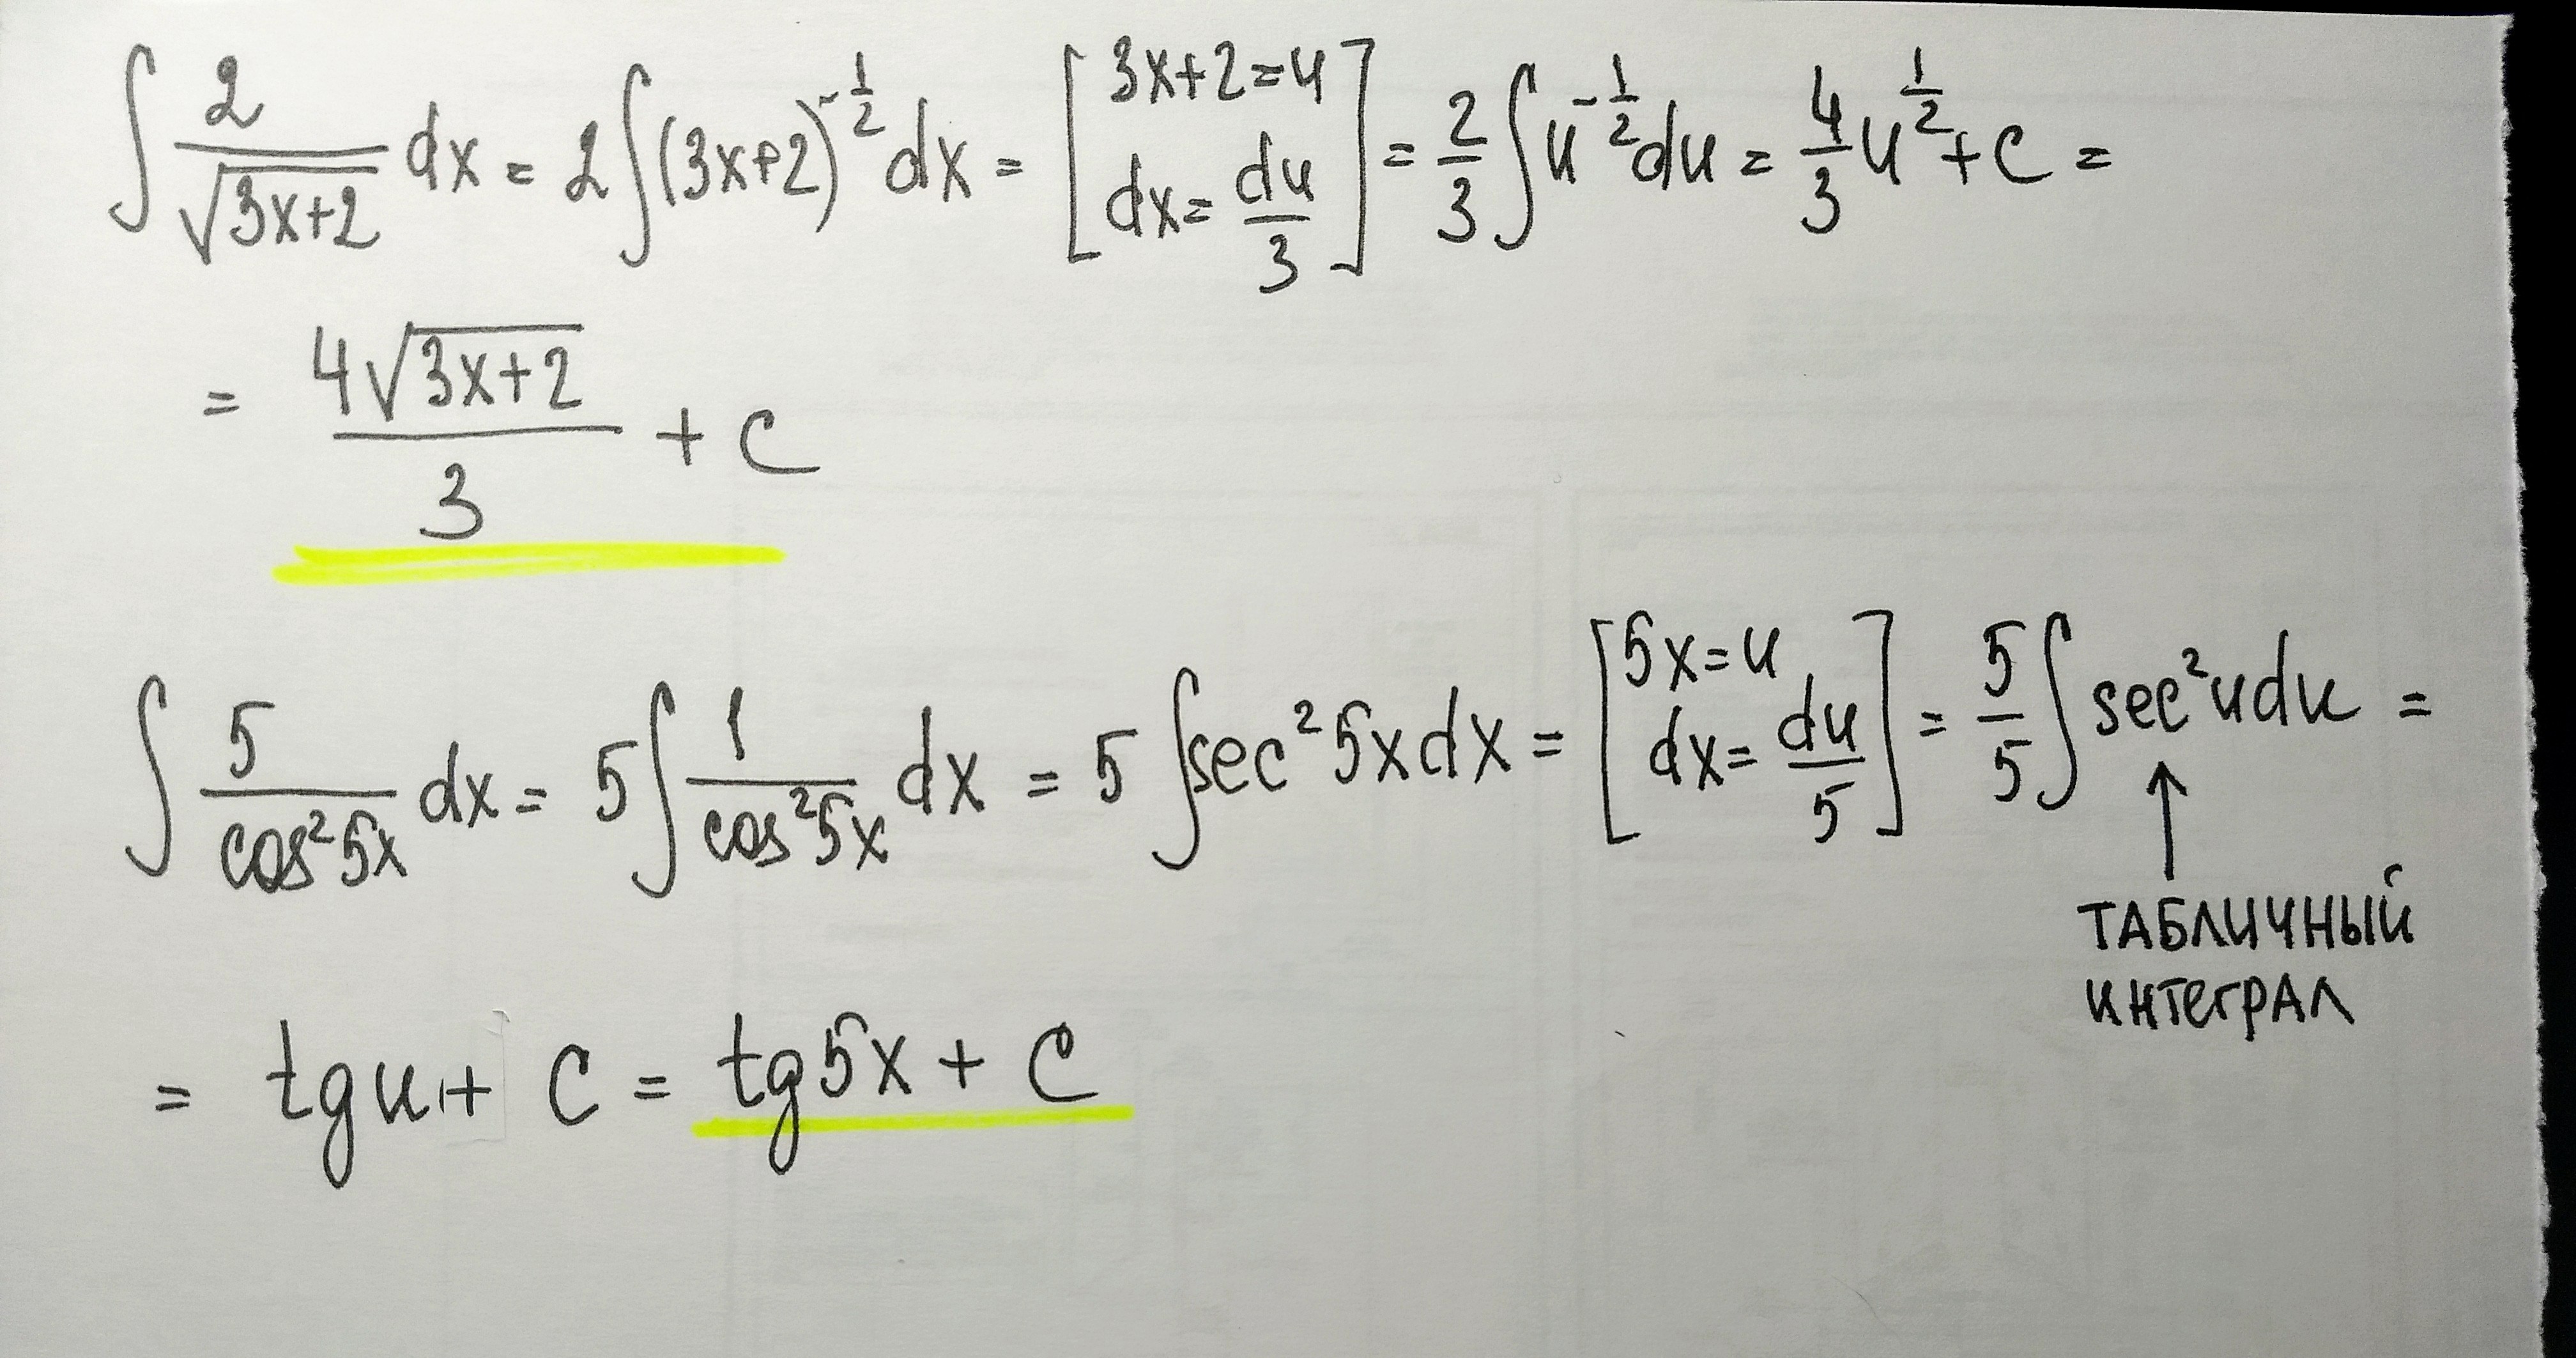 ∫ 2/√(3x+2) dx = 2∫(3x+2)^(-1/2) dx = [3x+2=u dx=du/3] = 2/3 ∫u^(-1/2) du = 4/3 u^(1/2) + C =
= 4√(3x+2)/3 + C
∫ 5/cos²5x dx = 5∫ 1/cos²5x dx = 5 ∫sec²5x dx = [5x=u dx=du/5] = 5/5 ∫ sec²u du =
ТАБЛИЧНЫЙ
ИНТЕГРАЛ
= tg u + C = tg 5x + C